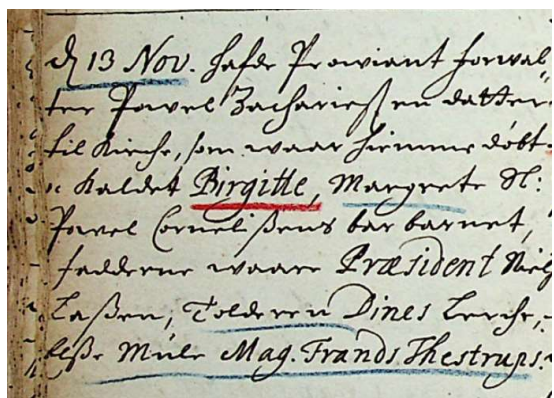 d 13 Nov. hafde Proviant Forwal-
ter Pavel Zacharießen datter
til Kirche, som waar hiemme døbt
kaldet Birgitte, Margrete Sl:
Pavel Cornelißens bar barnet,
fadderne waare Præsident Niels
Laßen, Tolderen Dines Lerche,
Elße Mule Mag. Frands Thestrups.